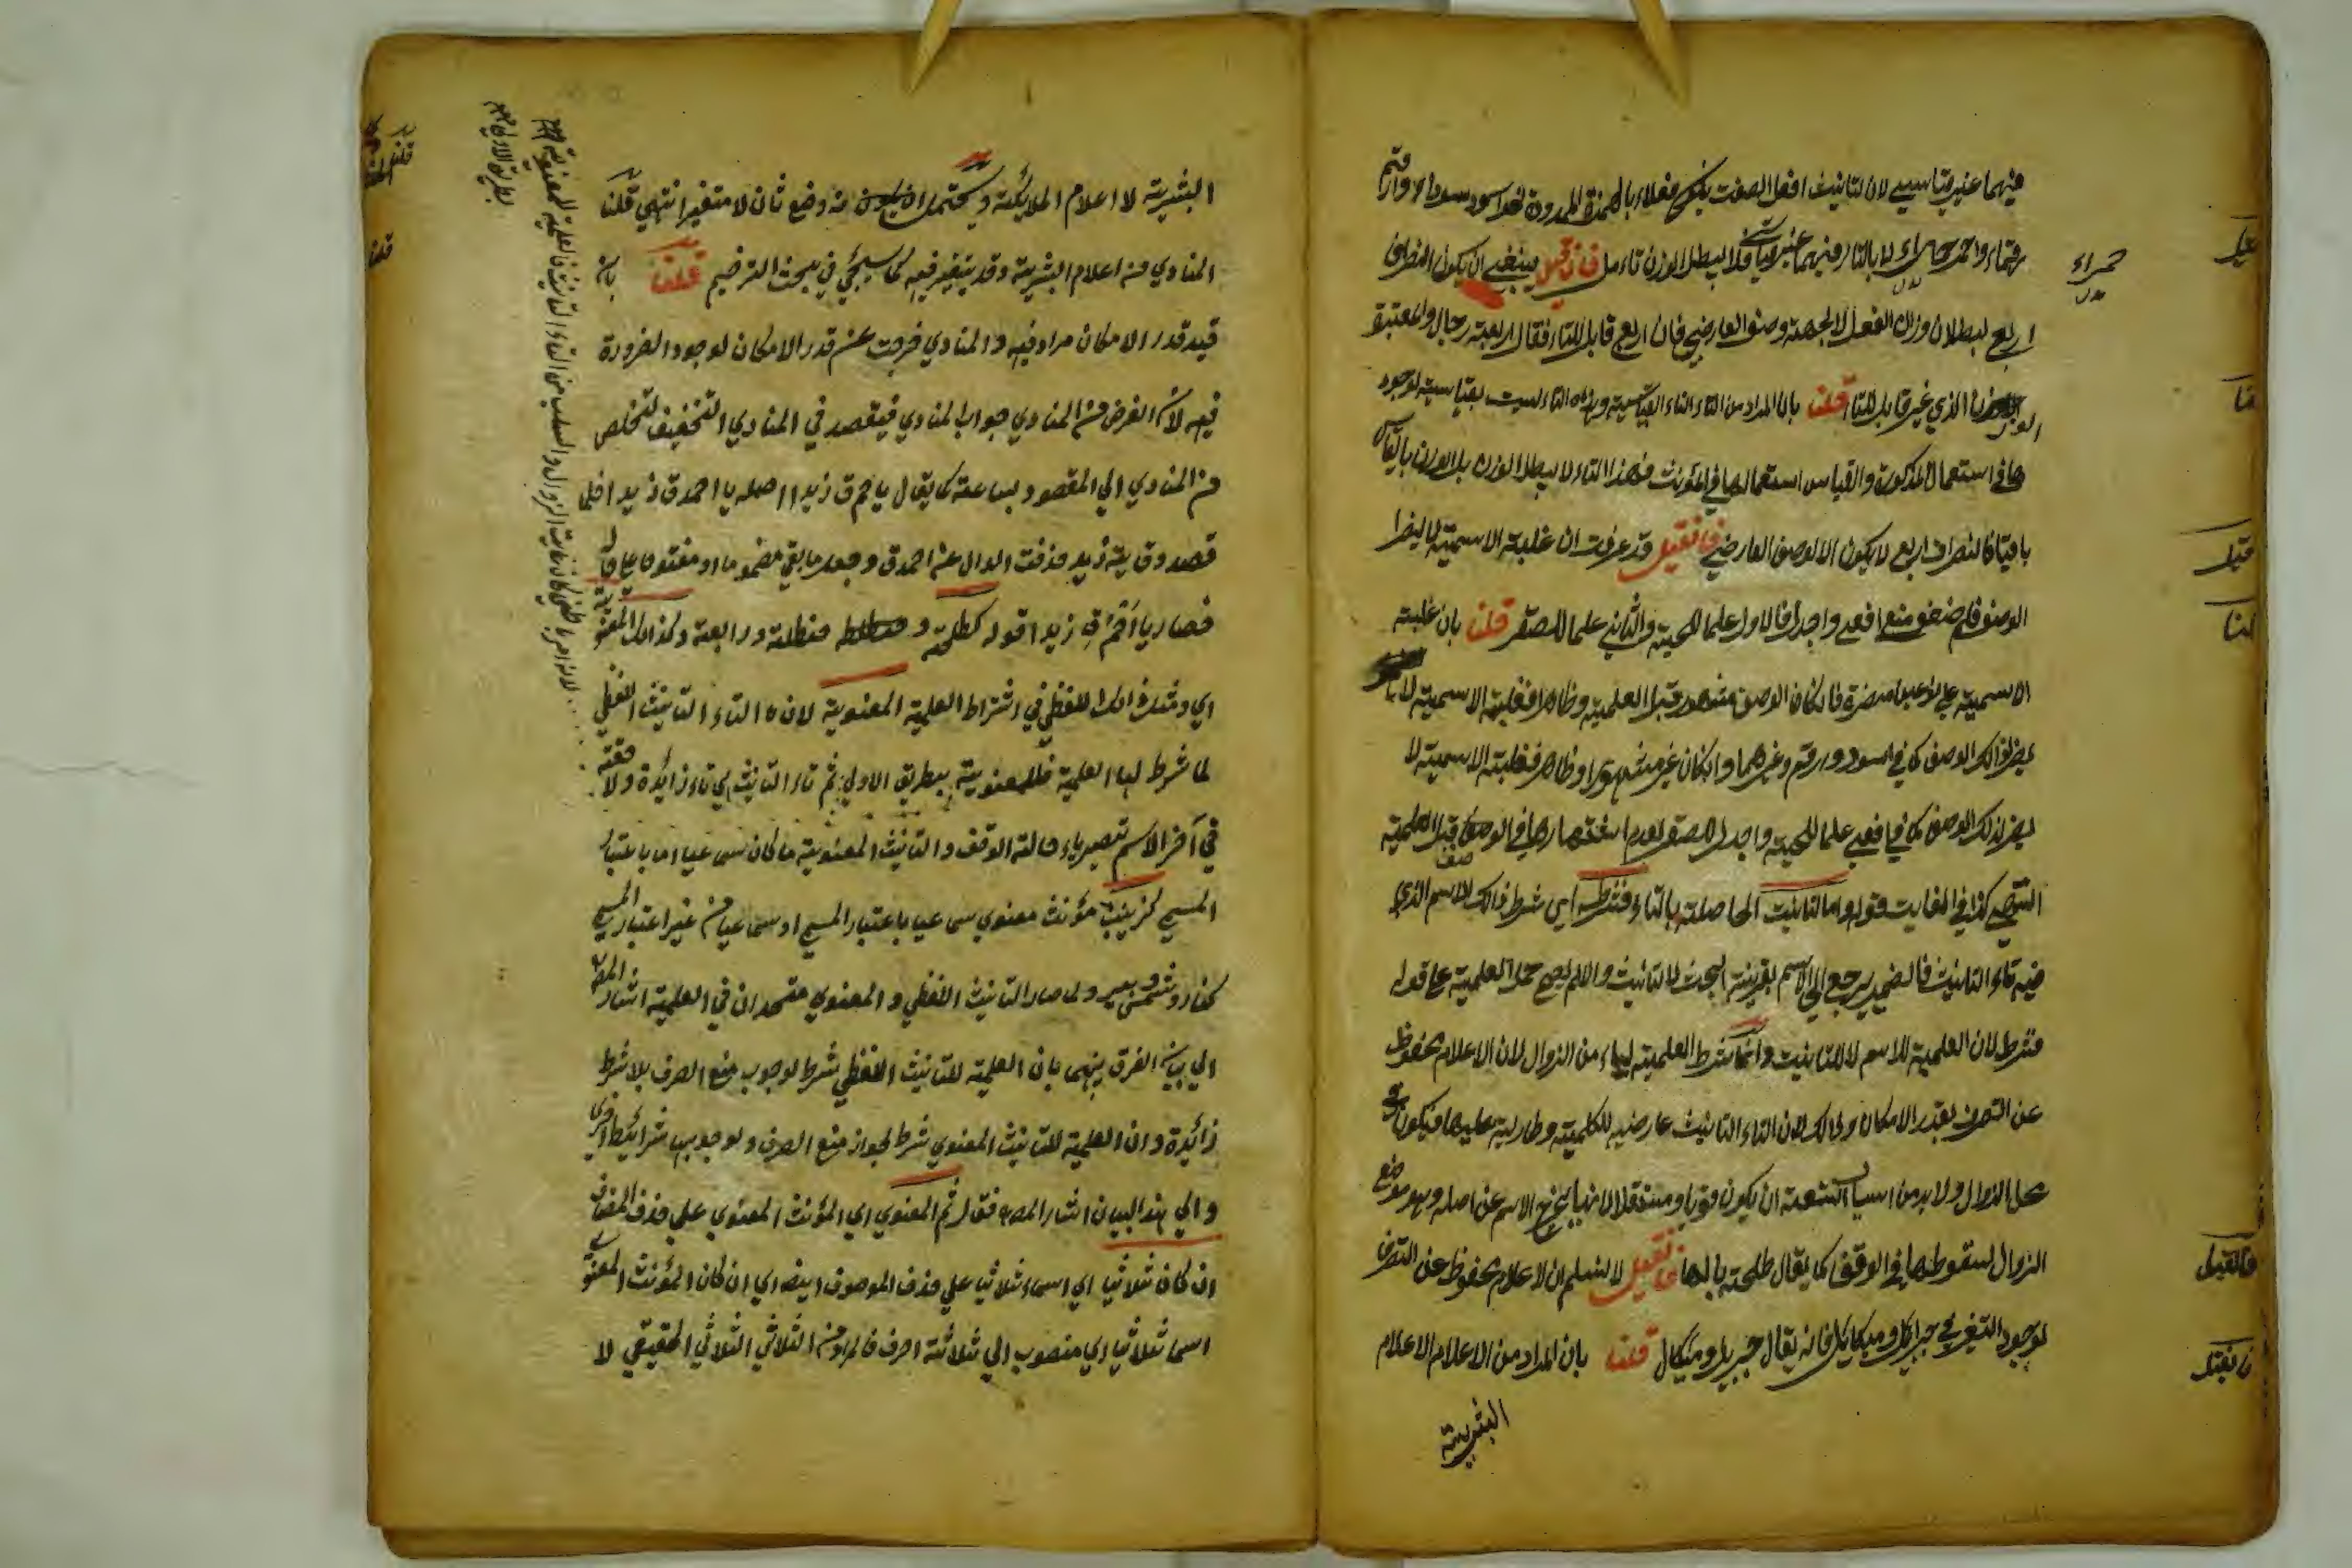 فيهما غير قياسي لان لتانيث افعل الصفت يكون فعلاء بالهمزة الممدودة نحو اسود سوداء وارقم
رقماء واحمر حمراء لا بالتاء فيهما غير قياسي فلا يبطل الوزن تامل فان قيل ينبغي ان يكون انصراف
اربع لبطلان وزن الفعل لا لجهة وصف العارضي فان اربع قابل للتاء فقال اربعة رجال والمعتبرة
الوزن الذي غير قابل للتاء قلنا بان المراد من التاء التاء القياسية وهذه التاء ليست بقياسية لوجود
ها في استعمال المذكورة والقياس استعمالها في المؤنث فهذا التاء لا يبطل الوزن بل الوزن
باقيا فانصراف اربع لا يكون الا لوصف العارضي فان قيل قد عرفت ان غلبة الاسمية لا يضر
الوصف فلم ضعف منع افعي واجدل فالاول علما للحية والثاني علما للصقر قلنا بان غلبة
الاسمية علي نوعين مضرة فان كان الوصف مشهور قبل العلمية وظاهرا فغلبة الاسمية لا
يضر ذالك الوصف كما في اسود وارقم وغيرهما وان كان غير مشهورا وظاهر فغلبة الاسمية لا
يضر لذلك الوصف كما في افعي علما للحية واجدل للصقر لعدم اشتهارها في الوصف قبل العلمية
انتهي كذا في الغايت قوله واما التانيث الحاصلة بالتاء فشرطه اي شرط ذالك الاسم الذي
فيه تاء التانيث فالضمير يرجع الي الاسم بقرينة البحث لا التانيث والا لم يصح حمل العلمية علي قوله
فشرط لان العلمية للاسم لا للتانيث وانما شرط العلمية ليهاء من الزوال لان الاعلام محفوظ
عن التصرف بقدر الامكان وذالك لان التاء التانيث عارضية للكلمية وطارية عليها فيكون في
محل الزوال ولا بد من اسباب التسعة ان يكون قويا ومستقلا لانها يخرج الاسم عن اصله وهو موضع
الزوال لسقوطها في الوقف كما يقال طلحة بالها فان قيل لا نسلم ان الاعلام محفوظ عن التصرف
لوجود التغير في جبرائيل وميكائيل فانه يقال جبريل وميكال قلنا بان المراد من الاعلام الاعلام
البشرية
حمراء
البشرية لا اعلام الملايكة ويحتمل ان يكون من وضع ثان لا متغيرا انتهي قلنا
المنادي من اعلام البشرية وقد يتغير فيه كما سيجي في بحث الترخيم قلنا بان
قيد قدر الامكان مراد فيه والمنادي خرجت عن قدر الامكان لوجود الضرورة
فيه لان الغرض من المنادي جواب المنادي فيقصد في المنادي التخفيف لتخلص
من المنادي الي المقصود بساعة كما يقال يا حمق زيدا اصله يا احمدق زيد افلما
قصد وقاية زيد حذفت الدال عن احمدق وجعل ما بقي مضموما او مفتوحا علي
فصار يا احمق زيدا قوله كطلحة و حنظلة ورابعة وكذالك المعنوي
اي ومثل ذالك اللفظي في اشتراط العلمية المعنوية لان التاء التانيث اللفظي
لما شرط لها العلمية فللمعنوية بطريق الاولي ثم تاء التانيث اي تاء زائدة ولاحقة
في آخر الاسم تصير هاء حالة الوقف والتانيث المعنوية ما كان سماعيا اما باعتبار
المسمي كزينب مؤنث معنوي سماعيا باعتبار المسمي او سماعيا من غير اعتبار المسمي
كنار وشمس وبير ولما صار التانيث اللفظي والمعنوي متحدان في العلمية اشار المص
الي بيان الفرق بينهما بان العلمية للتانيث اللفظي شرط لوجوب منع الصرف بلا شرط
زائدة وان العلمية للتانيث المعنوي شرط لجواز منع الصرف ولوجوبها شرائط اخري
والي هذا البيان اشار المص فقال ثم المعنوي اي المؤنث المعنوي علي حذف المضاف
ان كان ثلاثيا اي اسما ثلاثيا علي حذف الموصوف ايضا اي ان كان المؤنث المعنوي
اسما ثلاثيا اي منصوب الي ثلاثة احرف فالمراد من الثلاثي الثلاثي الحقيقي لا
قلنا